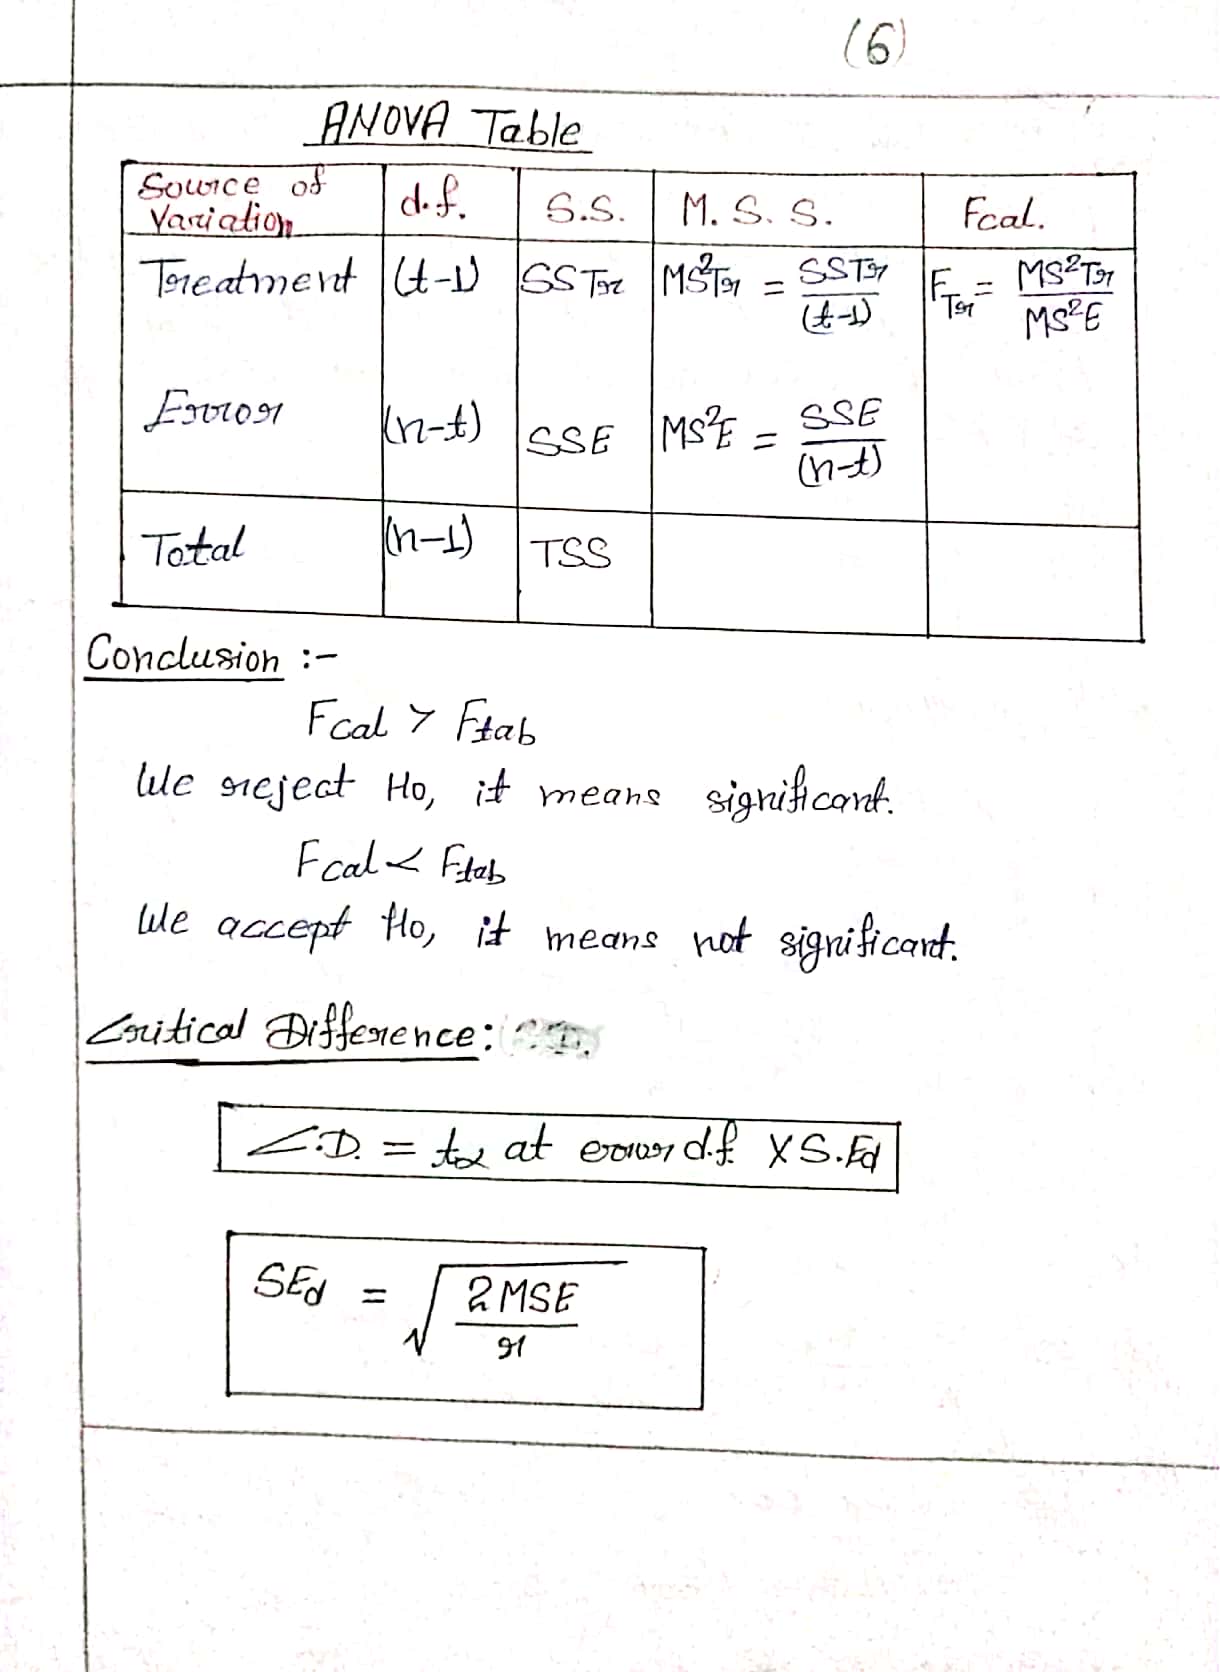 (6)
ANOVA Table
Source of Variation | d.f. | S.S. | M.S.S. | Fcal.
Treatment | (t-1) | SSTr | MS²Tr = SSTr/(t-1) | F_Tr = MS²Tr/MS²E
Error | (n-t) | SSE | MS²E = SSE/(n-t)
Total | (n-1) | TSS
Conclusion :-
Fcal > Ftab
We reject Ho, it means significant.
Fcal < Ftab
We accept Ho, it means not significant.
Critical Difference:
C.D. = tα at error d.f. X S.Ed
SEd = √(2MSE/r)